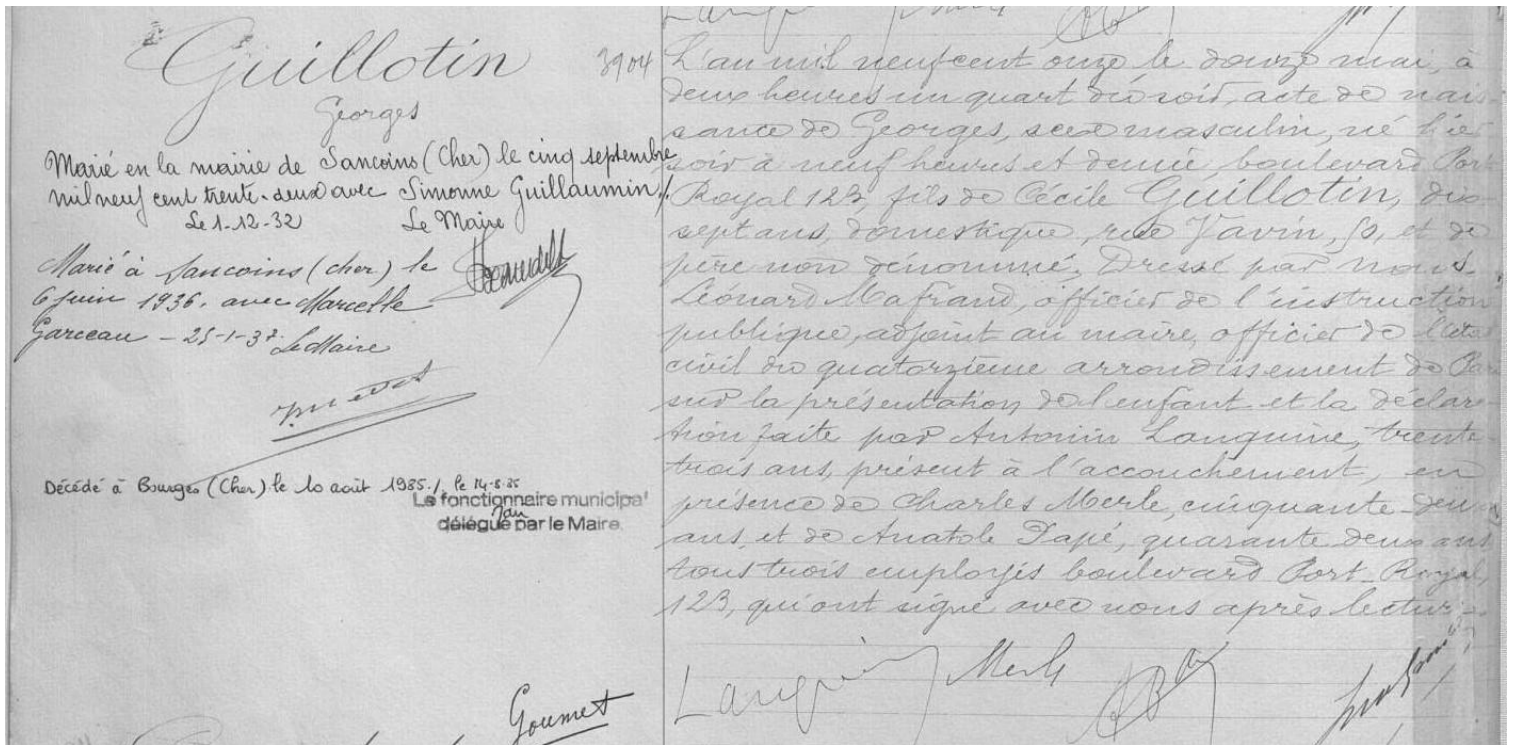 Guillotin
3904
Georges
Marié en la mairie de Sancoins (Cher) le cinq septembre
mil neuf cent trente-deux avec Simonne Guillaumin ./.
Le 1-12-32 Le Maire
Marié à Sancoins (cher) le
6 juin 1936. avec Marcelle
Garceau - 25-1-37. Le Maire
Décédé à Bourges (Cher) le 10 août 1985 ./. le 14-8-85
Le fonctionnaire municipal
délégué par le Maire.
Goumet
L'an mil neuf cent onze le douze mai, à
deux heures un quart du soir, acte de nais-
sance de Georges, sexe masculin, né hier
soir à neuf heures et demie, boulevard Port
Royal 123, fils de Cécile Guillotin, dix-
sept ans, domestique, rue Vavin, 50, et de
père non dénommé. Dressé par nous
Léonard Mafrand, officier de l'instruction
publique, adjoint au maire, officier de l'état
civil du quatorzième arrondissement de Par
sur la présentation de l'enfant et la déclara-
tion faite par Antonin Languine, trente-
trois ans, présent à l'accouchement, en
présence de Charles Merle, cinquante-deux
ans, et de Anatole Papé, quarante deux ans
tous trois employés boulevard Port-Royal,
123, qui ont signé avec nous après lecture.
Merle